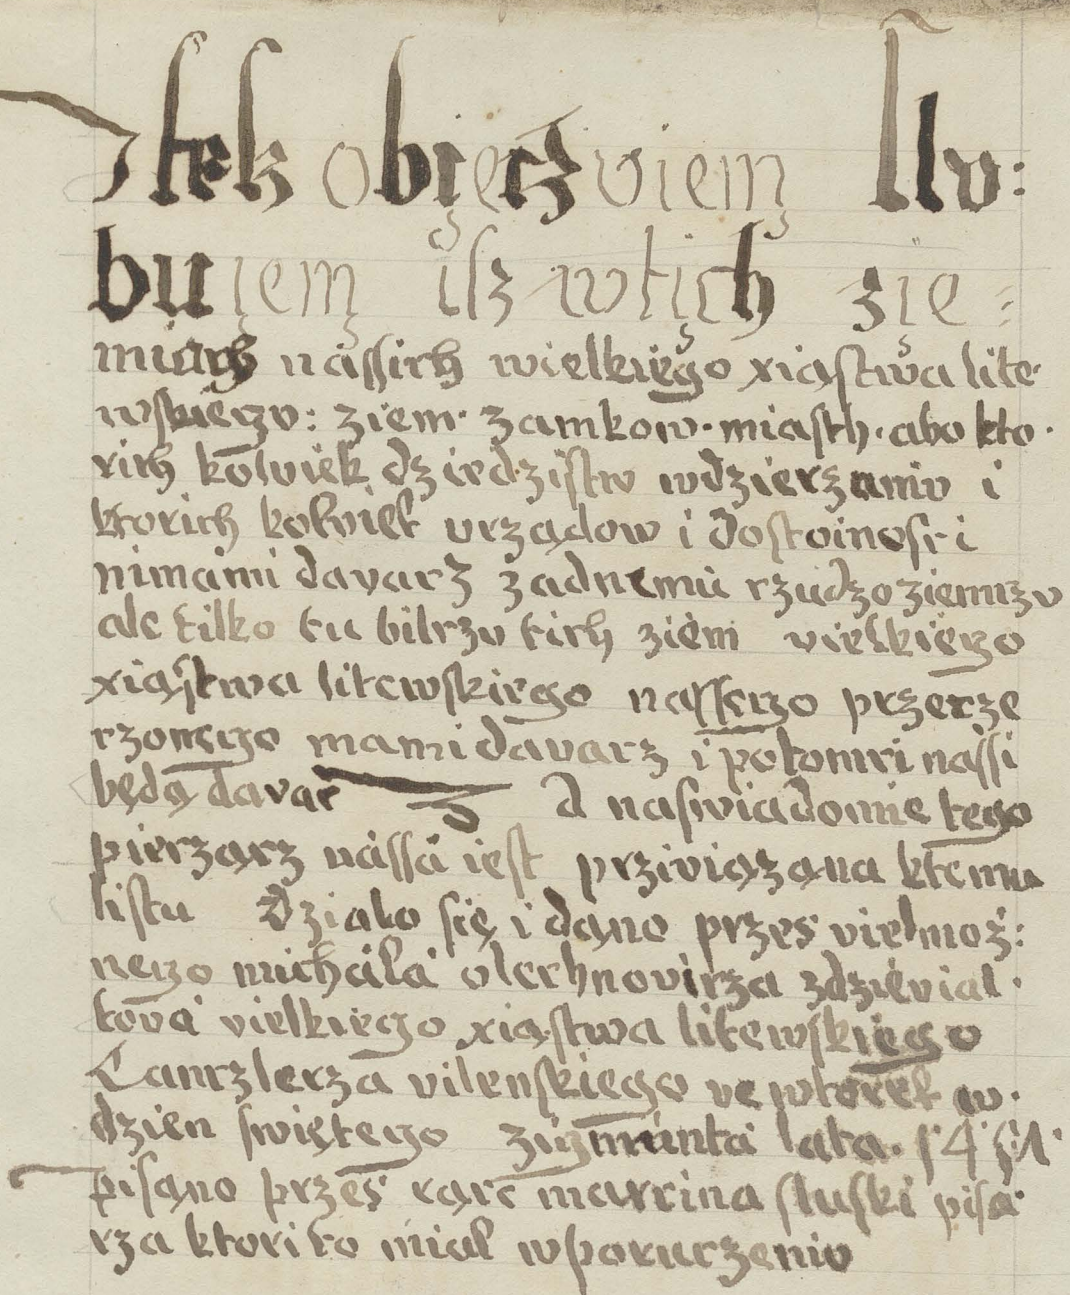 Itek obieczviem slv:
buiem isz wtich zie=
miach nassich wielkiego xiąstwa lite·
wskiego: ziem· zamkow· miasth· abo kto·
rich kolwiek dziedzistw wdzierzaniv i
ktorich kolwiek vrządow i dostoinosci
nimami davacz zadnemu czudzoziemczv
ale tilko tu bilczv tich ziem vielkiego
xiąstwa litewskiego nassego przerze
czonego mami davacz i potomci nassi
będą davac A naswiadomie tego
pieczącz nassa iest prziviązana ktemu
listu Dzialo się i dano przes vielmoż:
nego michala olechnovicza zdzievial·
tova vielkiego xiąstwa litewskiego
Canczlerza vilenskiego ve wtorek w·
dzien swiętego zigmunta lata·
pisano przes xące marcina sluski pisa·
rza ktori to mial wporuczeniv